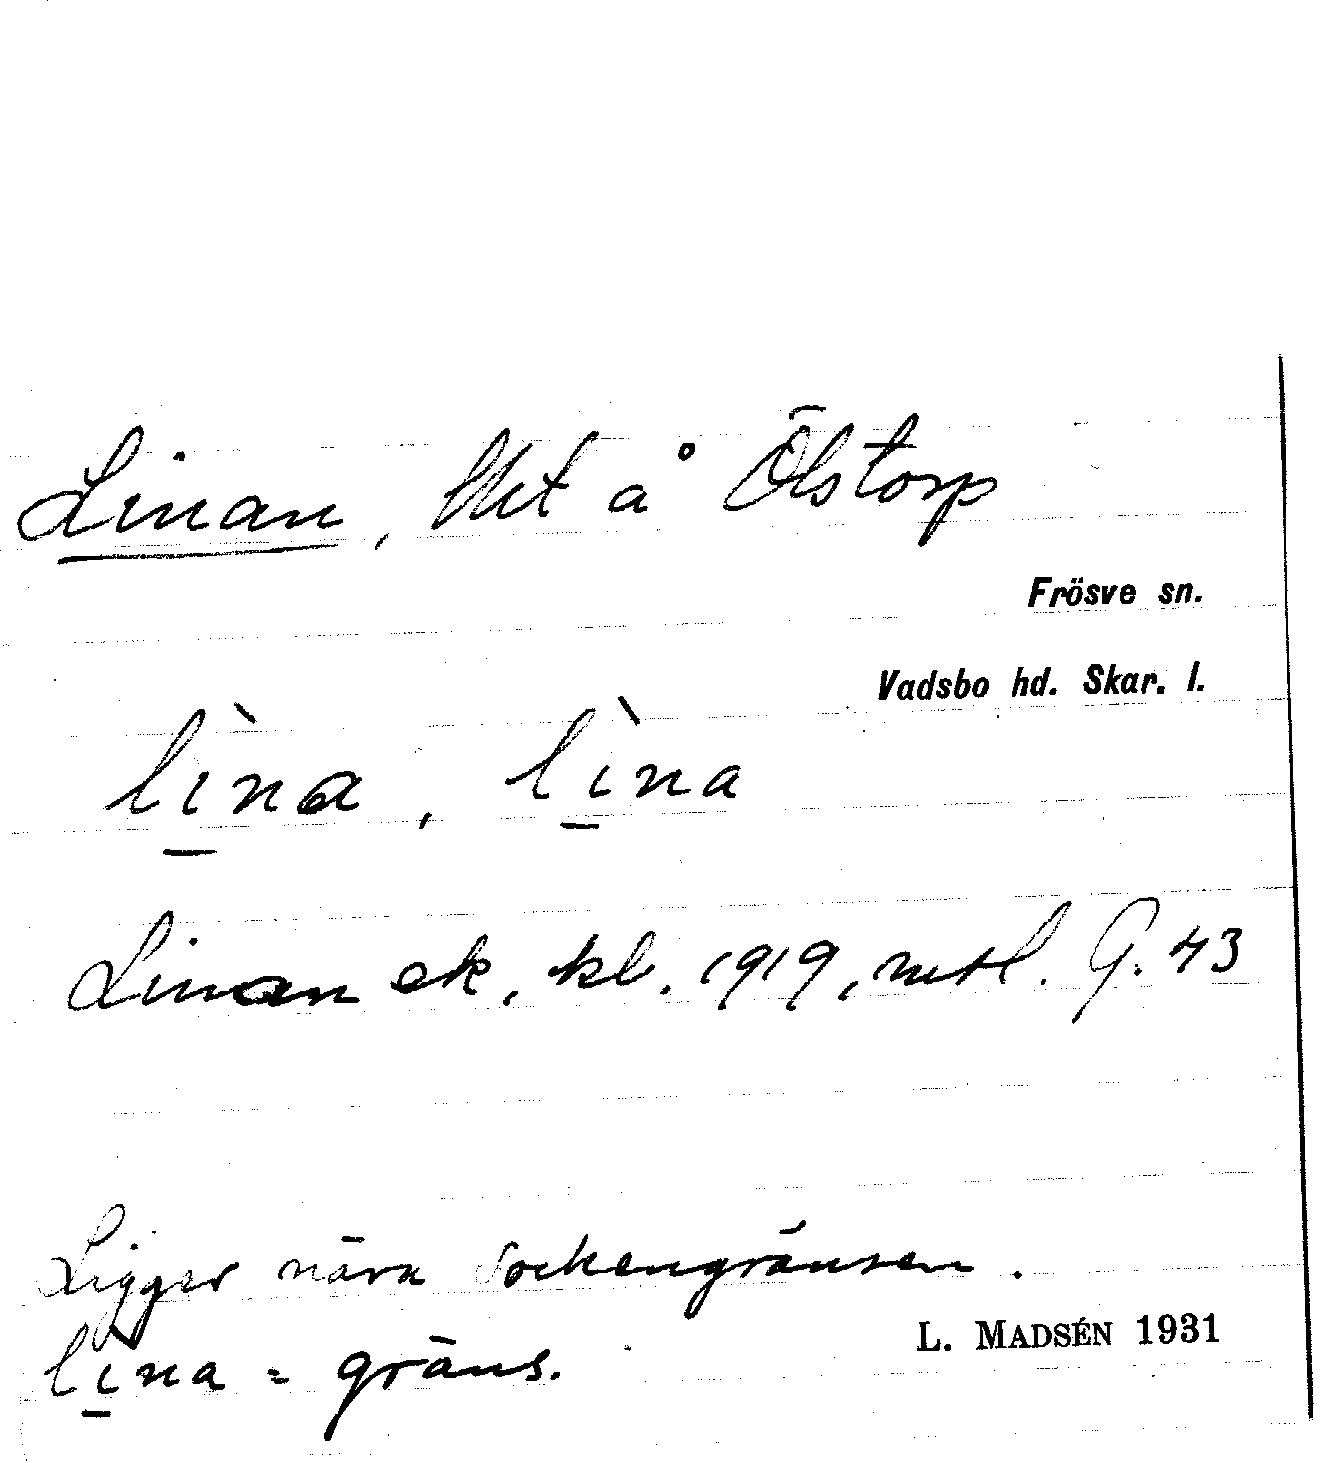 Linan, lht å Ölstorp
Frösve sn.
Vadsbo hd. Skar. l.
lı̱̀na, lı̱̀na
Linan ek. kl. 1919, mtl. G. 43
Ligger nära sockengränsen.
lı̱̀na = gräns.
L. MADSÉN 1931